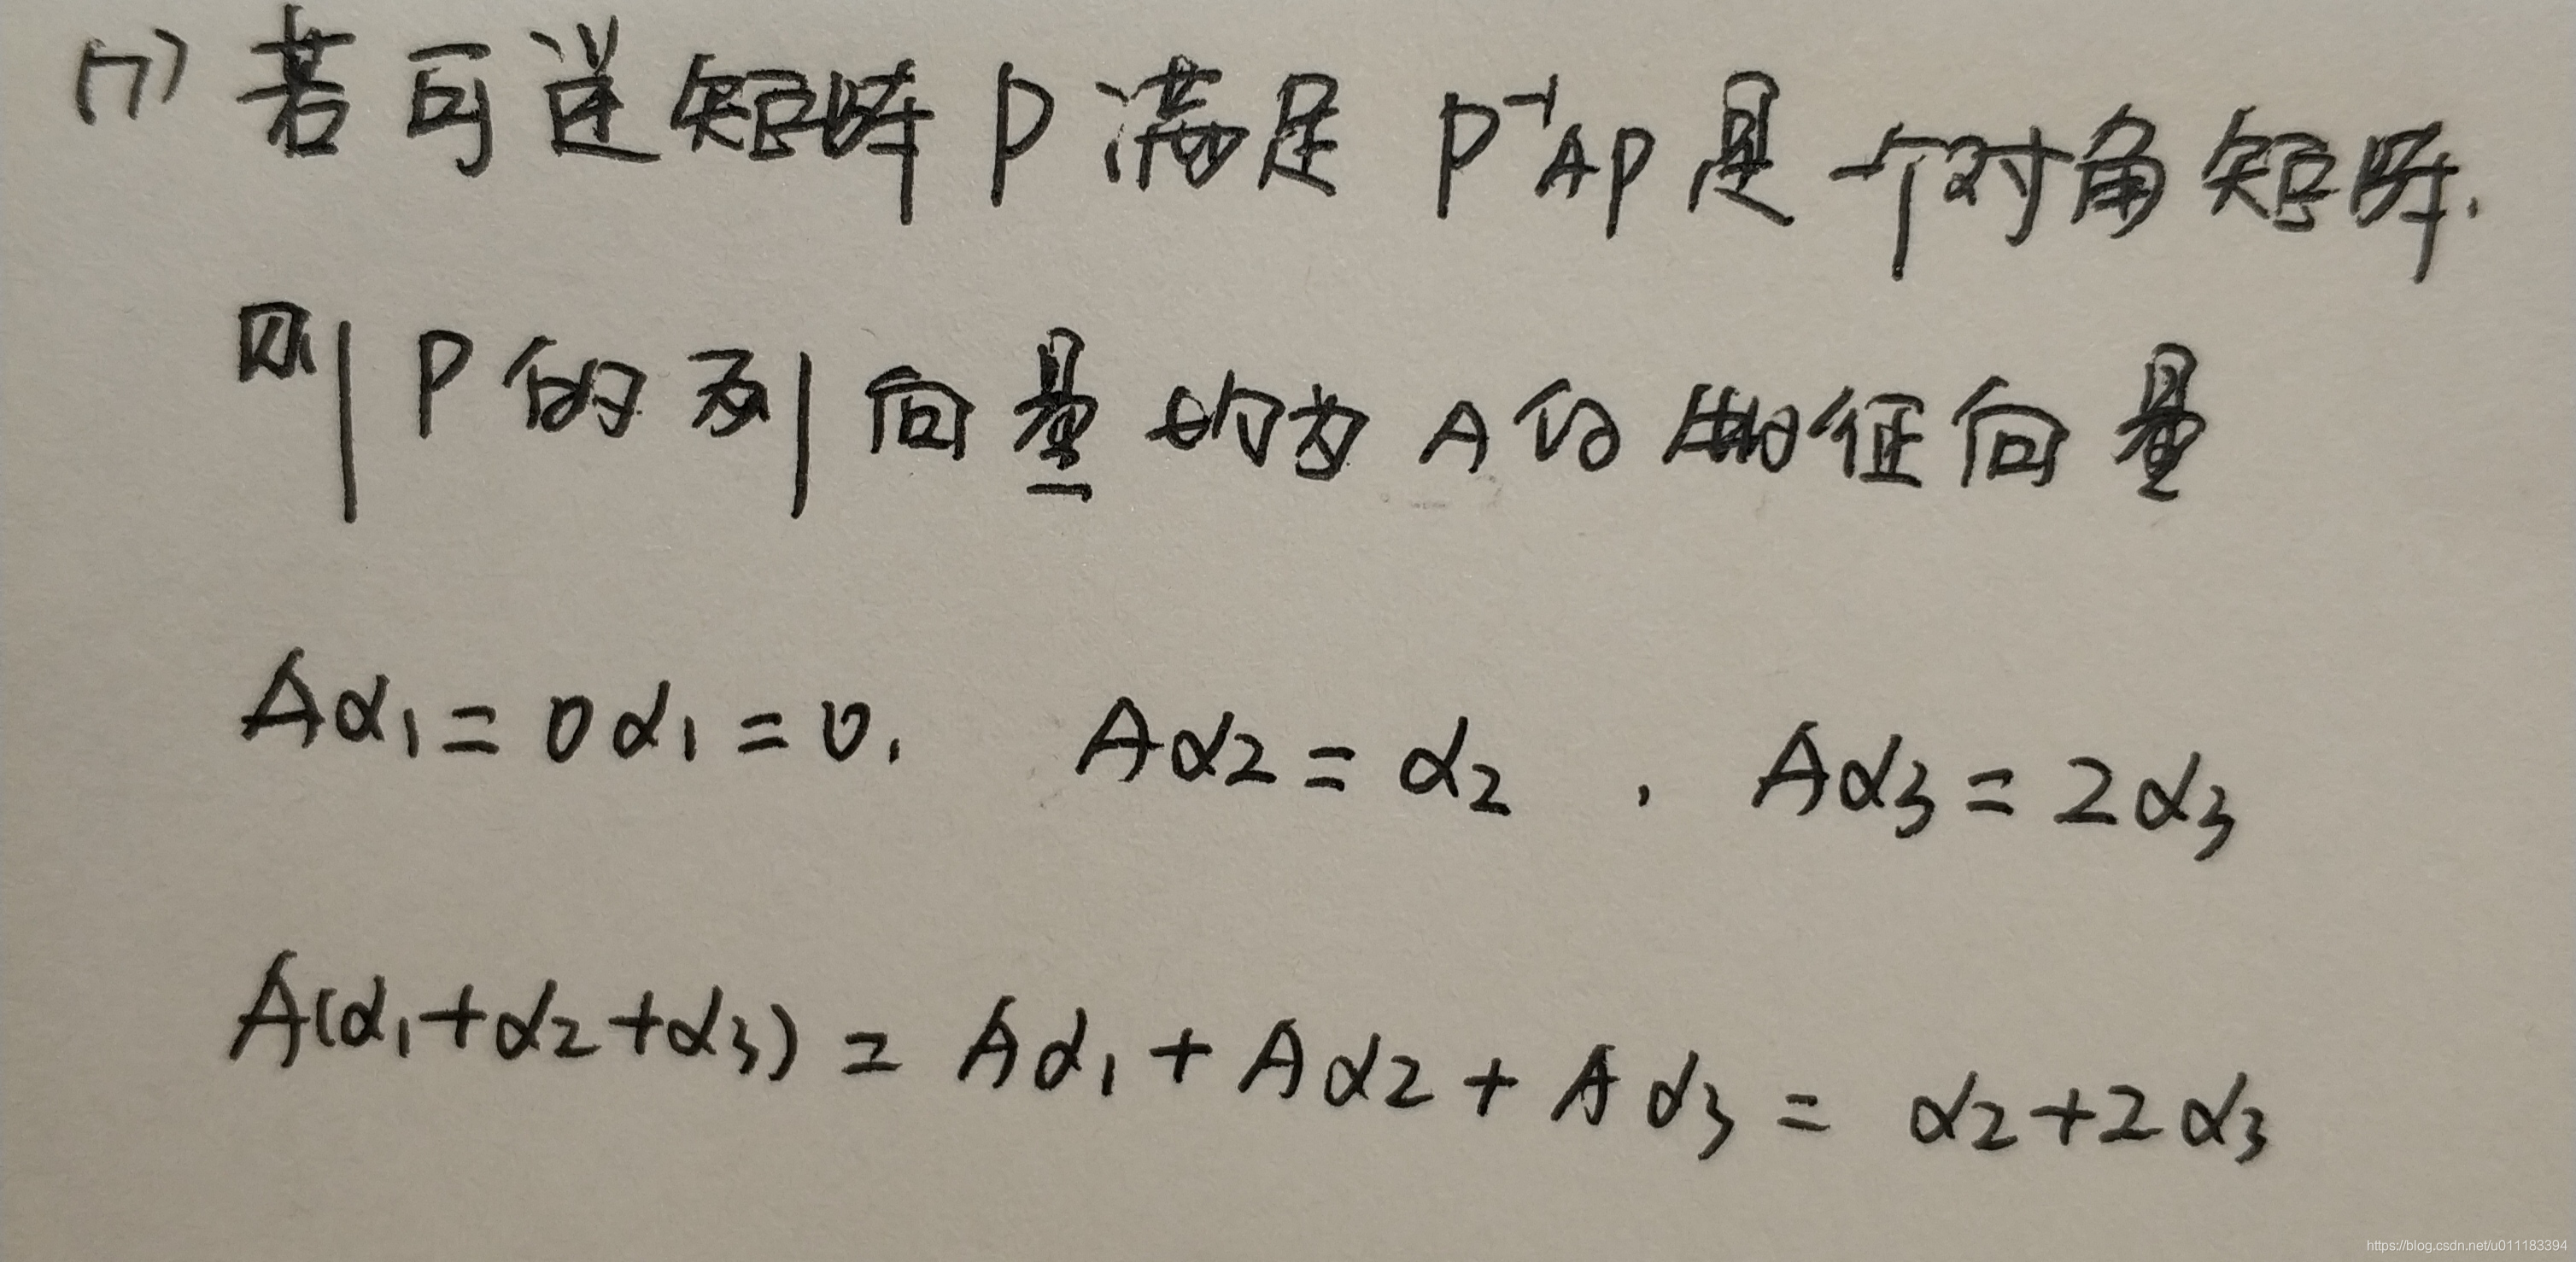 (7) 若可逆矩阵P满足 P⁻¹AP是一个对角矩阵.
则P的列向量均为A的特征向量
Aα₁=0α₁=0, Aα₂=α₂, Aα₃=2α₃
A(α₁+α₂+α₃)=Aα₁+Aα₂+Aα₃=α₂+2α₃
https://blog.csdn.net/u011183394